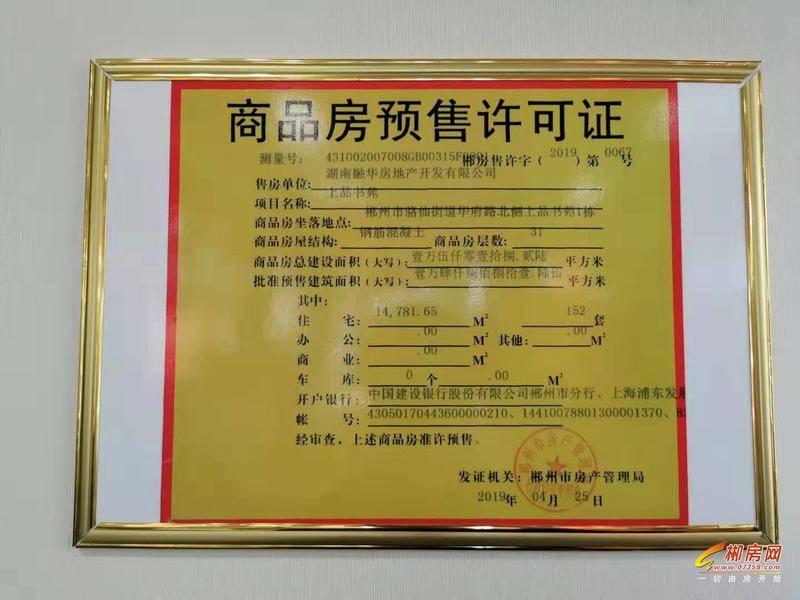 商品房预售许可证
测量号: 431002007008GB00315F0001
郴房售许字( 2019 )第 0067 号
售房单位: 湖南融华房地产开发有限公司
项目名称: 上品书苑
商品房坐落地点: 郴州市骆仙街道华府路北侧上品书苑1栋
商品房屋结构: 钢筋混凝土 商品房层数: 31
商品房总建设面积(大写): 壹万伍仟零壹拾捌.贰陆 平方米
批准预售建筑面积(大写): 壹万肆仟柒佰捌拾壹.陆伍 平方米
其中:
住 宅: 14,781.65 M² 152 套
办 公: .00 M² 其他: .00 M²
商 业: .00 M²
车 库: 0 个 .00 M²
开户银行: 中国建设银行股份有限公司郴州市分行、上海浦东发展
帐 号: 43050170443600000210、14410078801300001370、82
经审查,上述商品房准许预售。
发证机关: 郴州市房产管理局
2019 年 04 月 25 日
郴房网
www.0735fl.com
一切由房开始